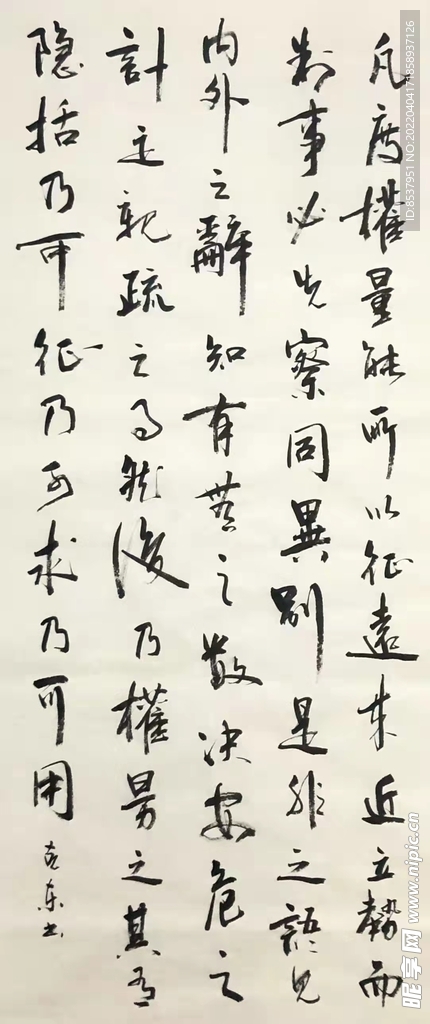 凡度權量能所以征遠来近立勢而
制事必先察同異别是非之語見
内外之辭知有無之數决安危之
計定親疏之事然後乃權量之其有
隐括乃可征乃可求乃可用
克东书
ID:8537951 NO:20220404171858937126
昵享网 www.nipic.cn